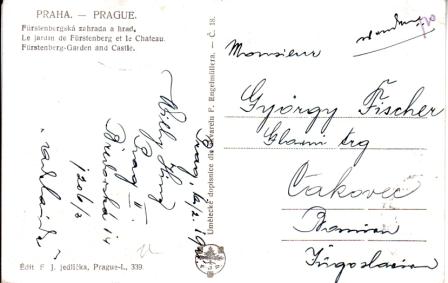 PRAHA. — PRAGUE.
Fürstenbergská zahrada a hrad.
Le jardin de Fürstenberg et le Chateau.
Fürstenberg-Garden and Castle.
Prag,
Willy
Prag II.
14
1206/3
Édit F. J. Jedlička, Prague-I., 339.
Umělecké dopisnice dle akvarelu F. Engelmüllera. — Č. 18.
Monsieur
György Fischer
Glavni trg
Čakovec
Jugoslavia